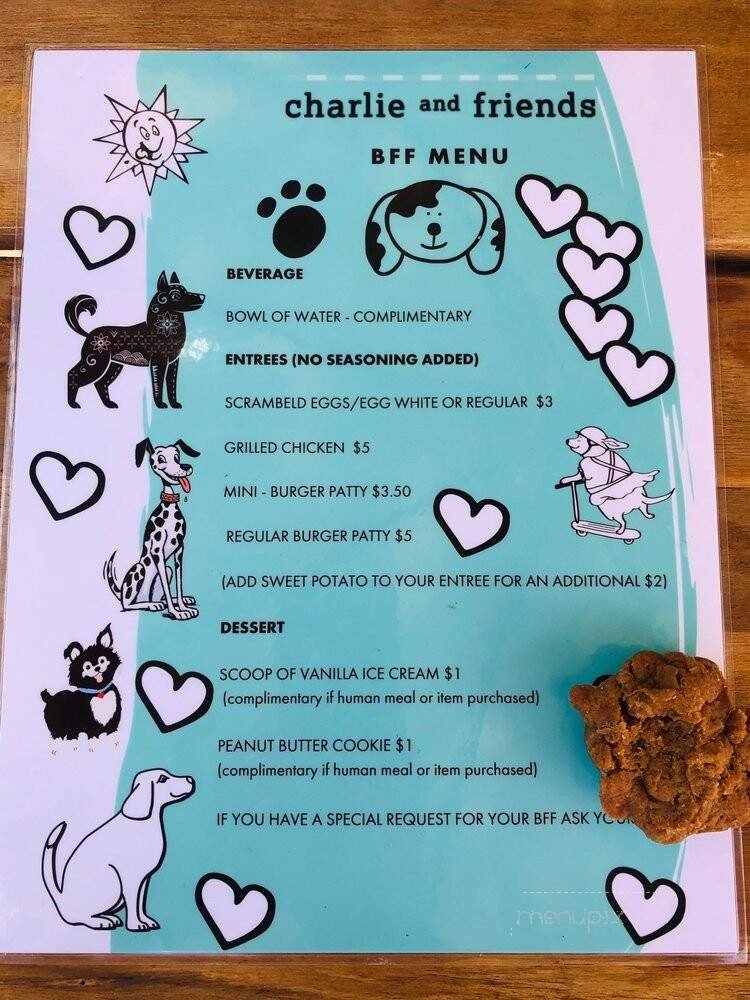 charlie and friends
BFF MENU
BEVERAGE
BOWL OF WATER - COMPLIMENTARY
ENTREES (NO SEASONING ADDED)
SCRAMBELD EGGS/EGG WHITE OR REGULAR $3
GRILLED CHICKEN $5
MINI - BURGER PATTY $3.50
REGULAR BURGER PATTY $5
(ADD SWEET POTATO TO YOUR ENTREE FOR AN ADDITIONAL $2)
DESSERT
SCOOP OF VANILLA ICE CREAM $1
(complimentary if human meal or item purchased)
PEANUT BUTTER COOKIE $1
(complimentary if human meal or item purchased)
IF YOU HAVE A SPECIAL REQUEST FOR YOUR BFF ASK YOUR
menupix